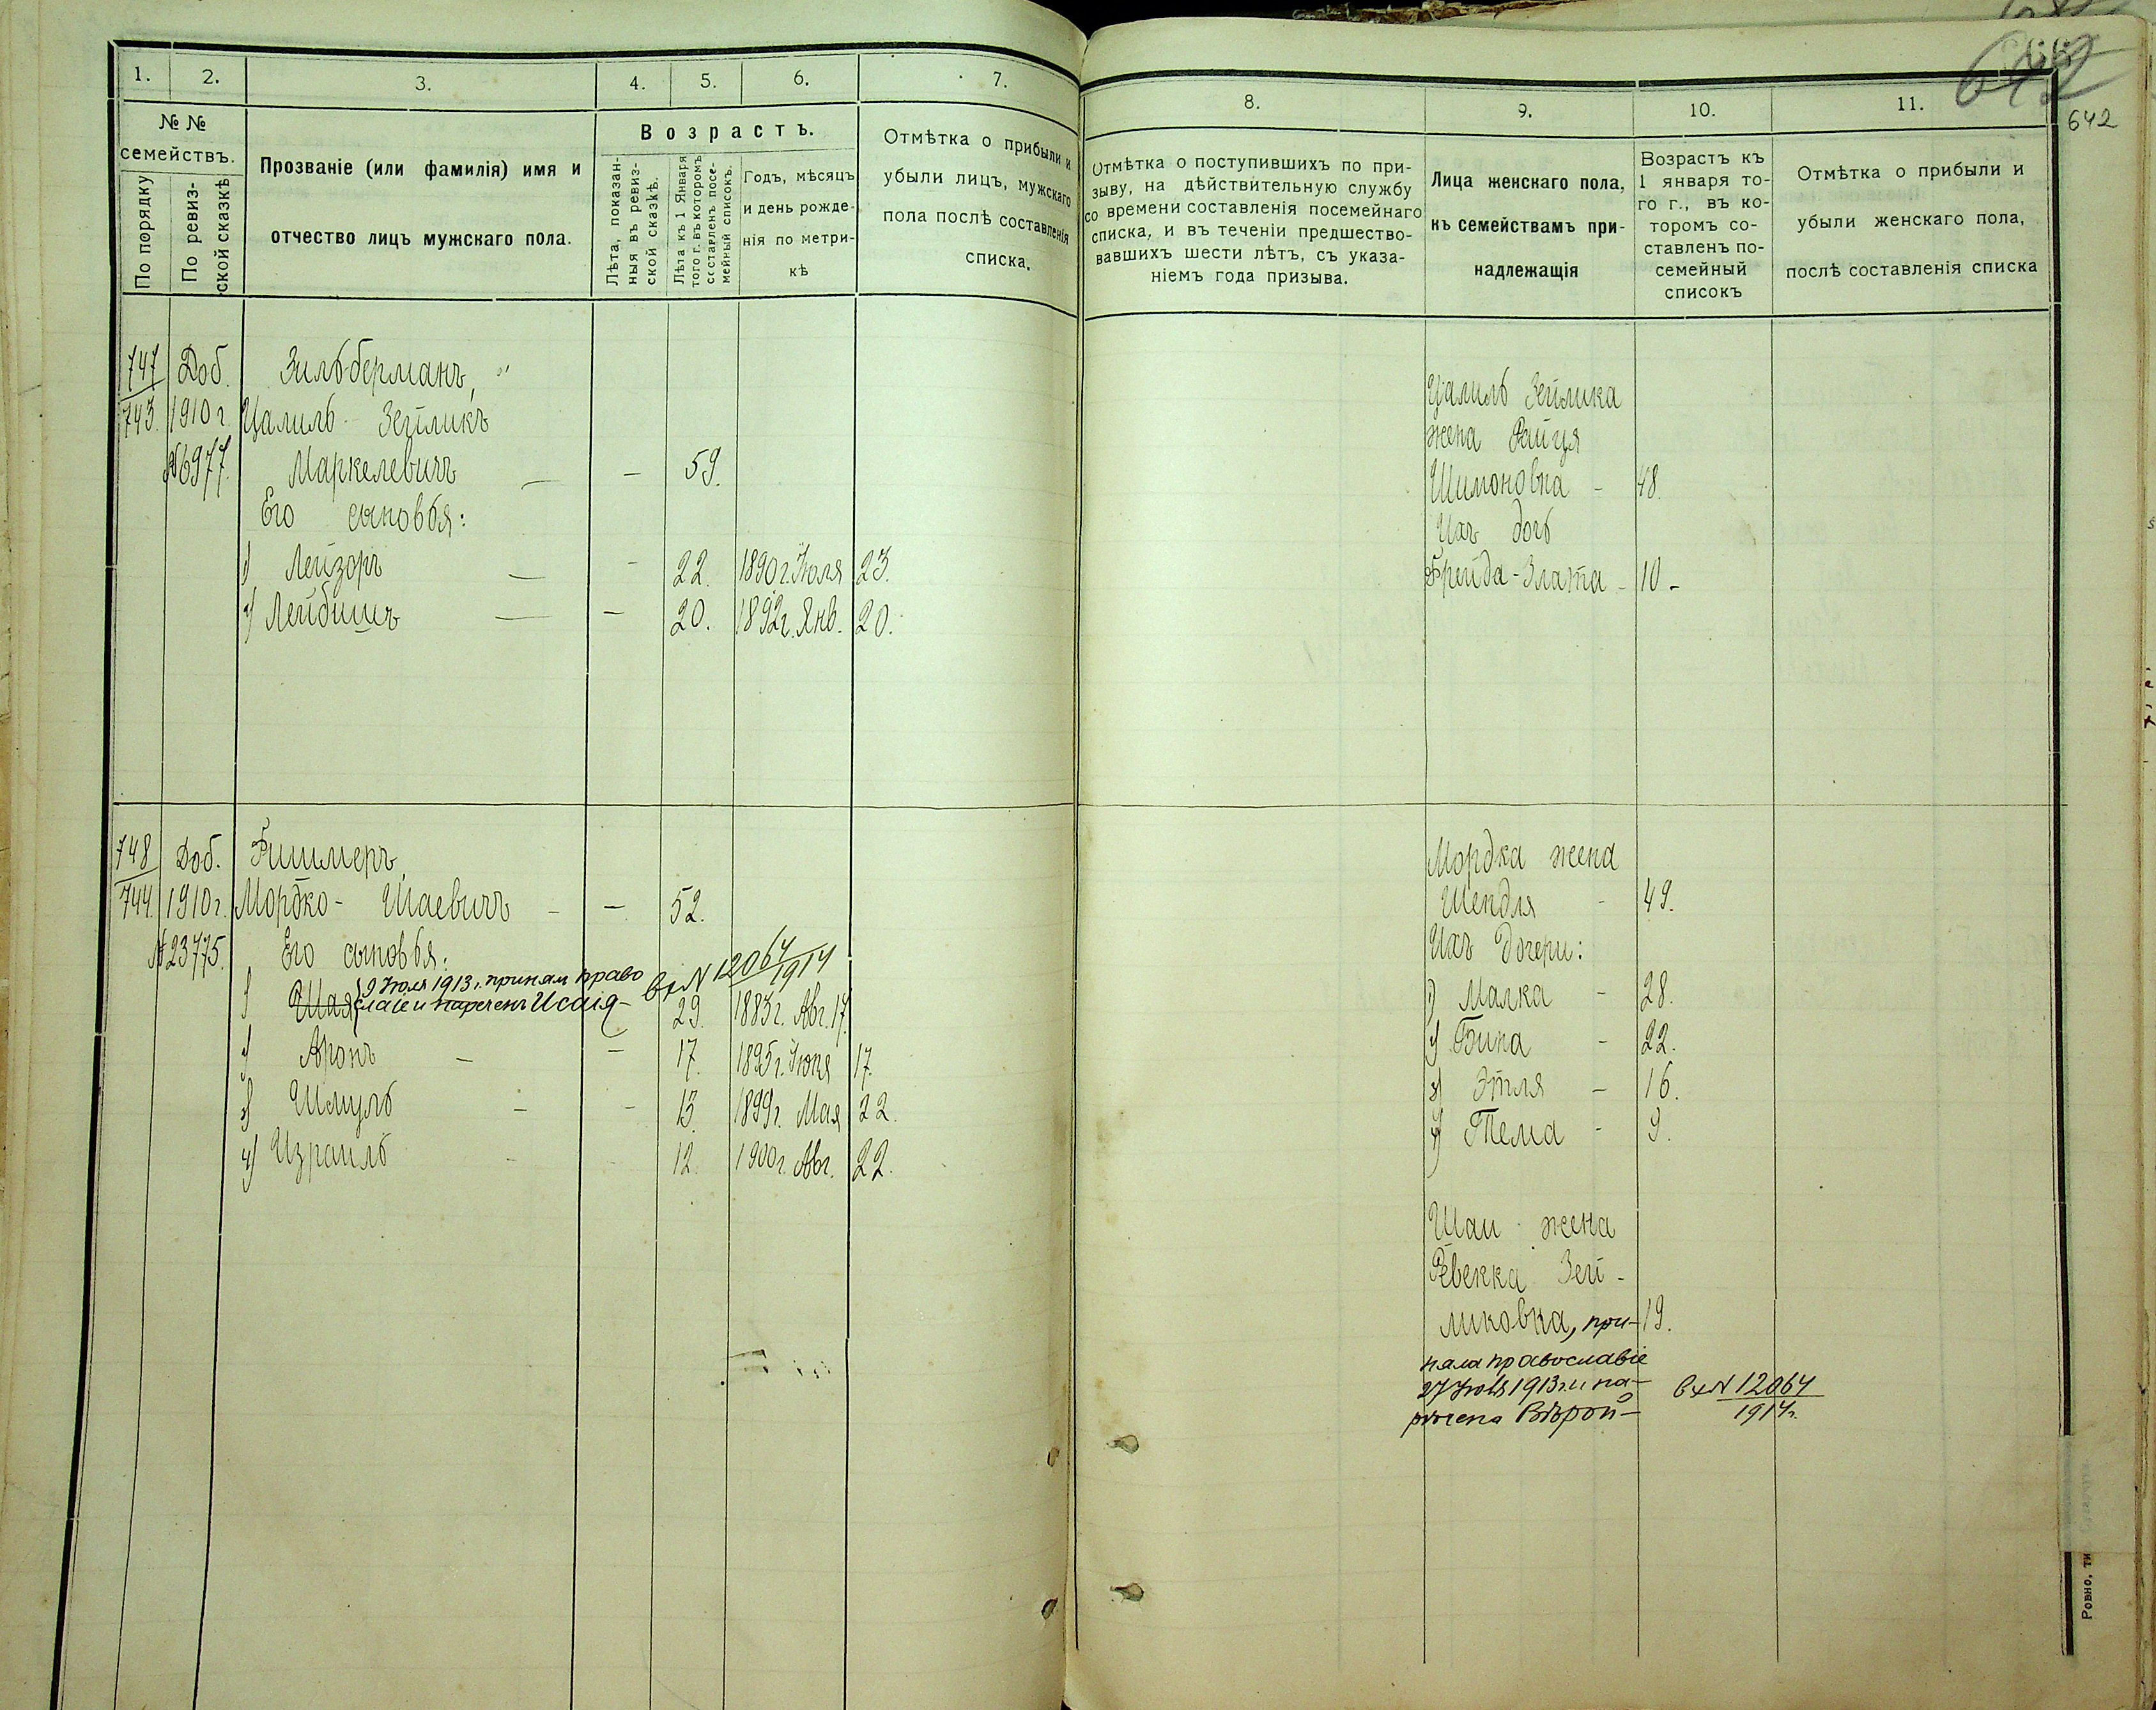 1. 2. 3. 4. 5. 6. 7.
№ №
семействъ.
По порядку
По ревиз-
ской сказкѣ
Прозваніе (или фамилія) имя и
отчество лицъ мужскаго пола.
Возрастъ.
Лѣта, показан-
ныя въ ревиз-
ской сказкѣ.
Лѣта къ 1 Января
того г. въ которомъ
составленъ посе-
мейный списокъ.
Годъ, мѣсяцъ
и день рожде-
нія по метри-
кѣ
Отмѣтка о прибыли и
убыли лицъ, мужскаго
пола послѣ составленія
списка.
747 Доб. Зильберманъ,
743. 1910 г. Цалиль-Зейликъ
№6977. Маркелевичъ — — 59.
Его сыновья:
1) Лейзоръ — - 22. 1890 г. Іюля 23.
2) Лейбишъ — — 20. 1892 г. Янв. 20.
748 Доб. Фишмеръ,
744. 1910 г. Мордко - Шаевичъ - — 52.
№23775. Его сыновья:
9 Іюля 1913 г. принял право Вх N 12064
1914
1) Шая славіе и наречен Исаія - 29. 1883 г. Авг. 17.
2) Аронъ — — 17. 1895 г. Іюня 17.
3) Шмуль - - 13. 1899 г. Мая 22.
4) Израиль - 12. 1900 г. Авг. 22.
8. 9. 10. 11.
642
642
Отмѣтка о поступившихъ по при-
зыву, на дѣйствительную службу
со времени составленія посемейнаго
списка, и въ теченіи предшество-
вавшихъ шести лѣтъ, съ указа-
ніемъ года призыва.
Лица женскаго пола,
къ семействамъ при-
надлежащія
Возрастъ къ
1 января то-
го г., въ ко-
торомъ со-
ставленъ по-
семейный
списокъ
Отмѣтка о прибыли и
убыли женскаго пола,
послѣ составленія списка
Цалиль Зейлика
жена Райця
Шимоновна - 48.
Ихъ дочь
Фрейда-Злата - 10 -
Мордка жена
Шендля - 49.
Ихъ дочери:
1) Малка - 28.
2) Бина - 22.
3) Этля - 16.
4) Тема - 9.
Шаи жена
Ревекка Зей-
ликовна, при- 19.
няла православіе
27 Іюля 1913 г. и на-
речена Вѣрой -
Вх N 12064
1914 г.
Ровно, ти